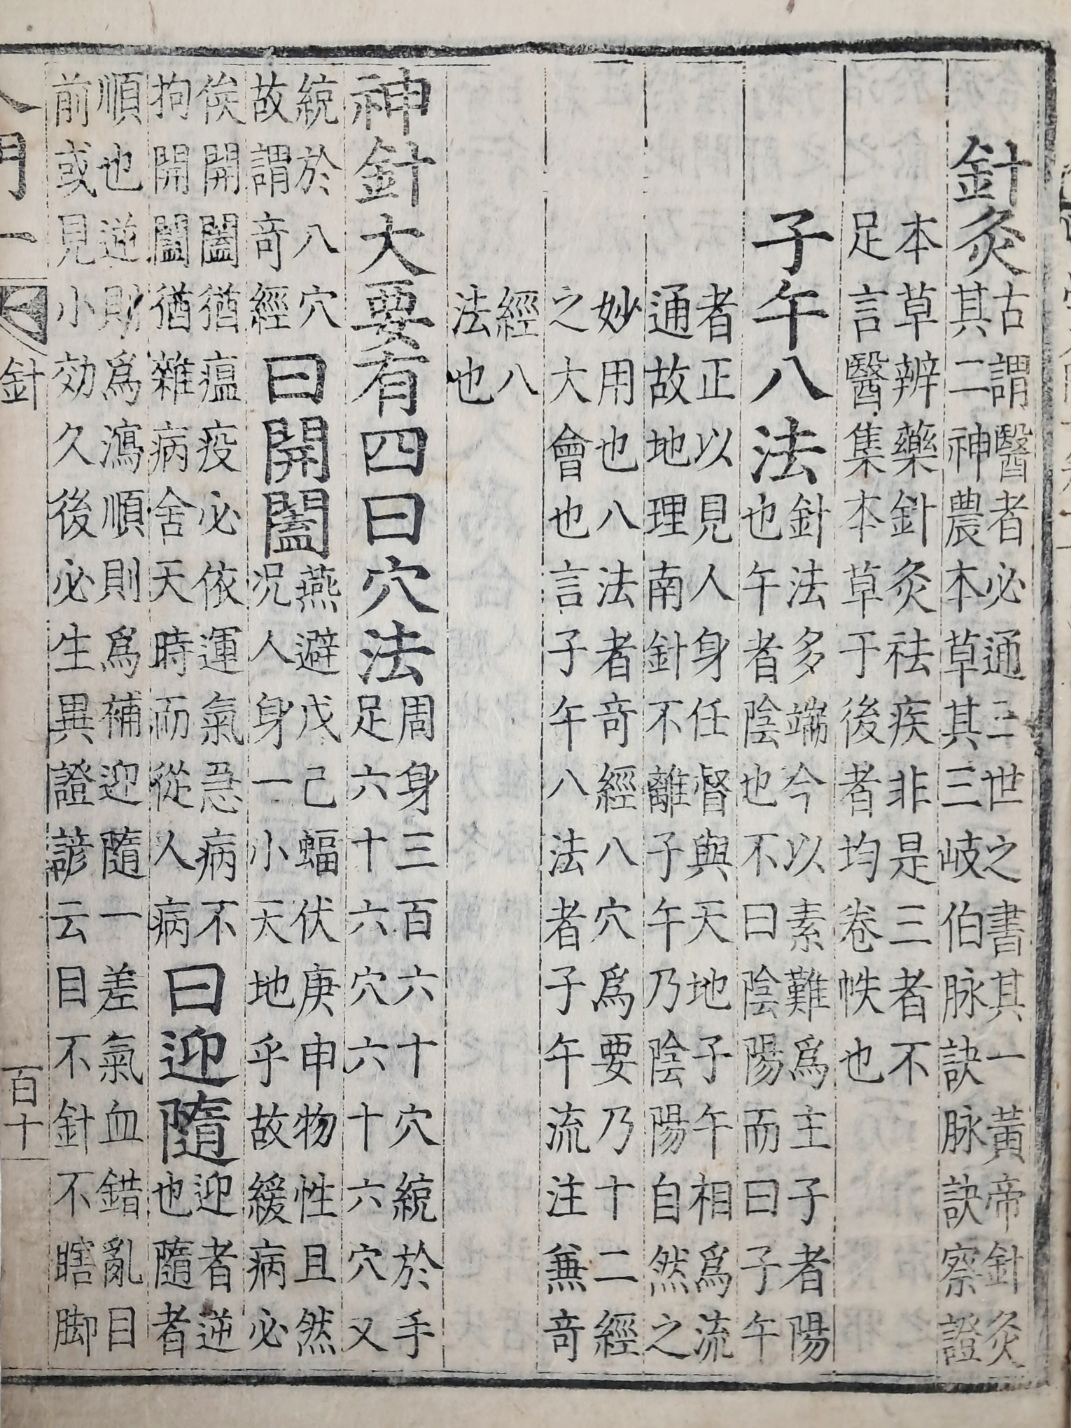 針灸
古謂醫者必通三世之書其一黃帝針灸
其二神農本草其三岐伯脉訣脉訣察證
本草辨藥針灸祛疾非是三者不
足言醫集本草于後者均卷帙也
子午八法
針法多端今以素難爲主子者陽
也午者陰也不曰陰陽而曰子午
者正以見人身任督與天地子午相爲流
通故地理南針不離子午乃陰陽自然之
妙用也八法者竒經八穴爲要乃十二經
之大會也言子午八法者子午流注兼竒
經八
法也
神針大要有四曰穴法
周身三百六十穴統於手
足六十六穴六十六穴又
統於八穴
故謂竒經
曰開闔
燕避戊己蝠伏庚申物性且然
况人身一小天地乎故緩病必
俟開闔猶瘟疫必依運氣急病不
拘開闔猶雜病舍天時而從人病
曰迎隨
迎者逆
也隨者
順也逆則爲瀉順則爲補迎隨一差氣血錯亂目
前或見小効久後必生異證諺云目不針不瞎脚
門一
針
百十